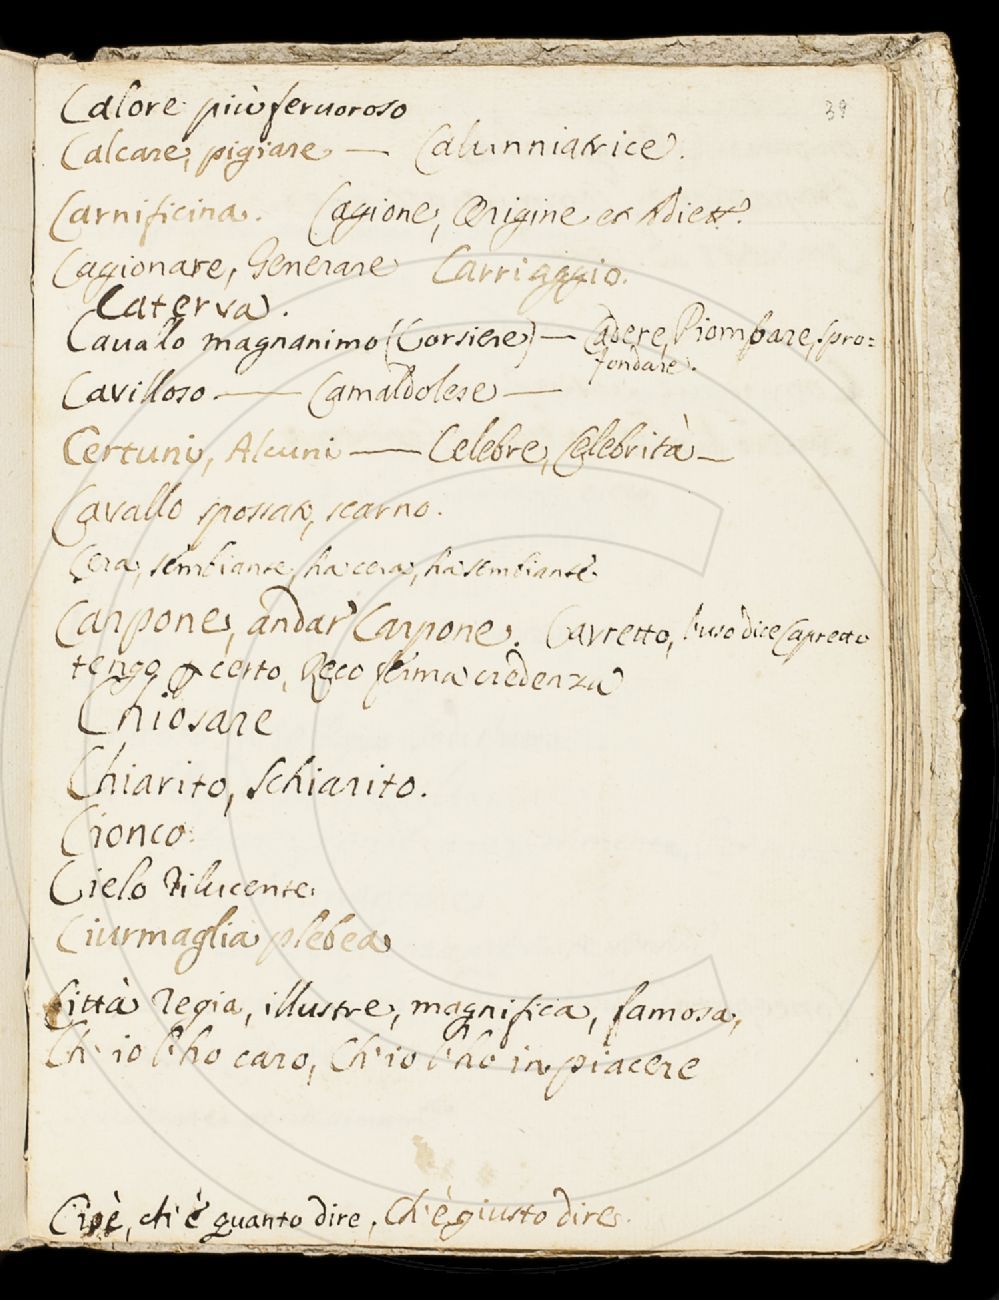 39
Calore più feruoroso
Calcare, pigiare — Calunniatrice.
Carnificina. Cagione, Origine et Adiett.º
Cagionare, Generare Carriaggio.
Caterva.
Cauallo magnanimo (Corsiere) — Cadere, Piombare, spro=
fondare.
Cavilloso — Camaldolese —
Certuni, Alcuni — Celebre, Celebrità —
Cavallo spossato, scarno.
Cera, sembiante, ha cera, ha sembiante
Carpone, andar Carpone. Cavretto, l'uso dice Capretto
tengo p certo, Reco ferma credenza
Chiosare
Chiarito, Schiarito.
Cionco.
Cielo Rilucente.
Ciurmaglia plebea
Città Regia, illustre, magnifica, famosa,
Ch'io l'ho caro, Ch'io l'ho in piacere
Cioè, ch'è quanto dire, Ch'è giusto dire.